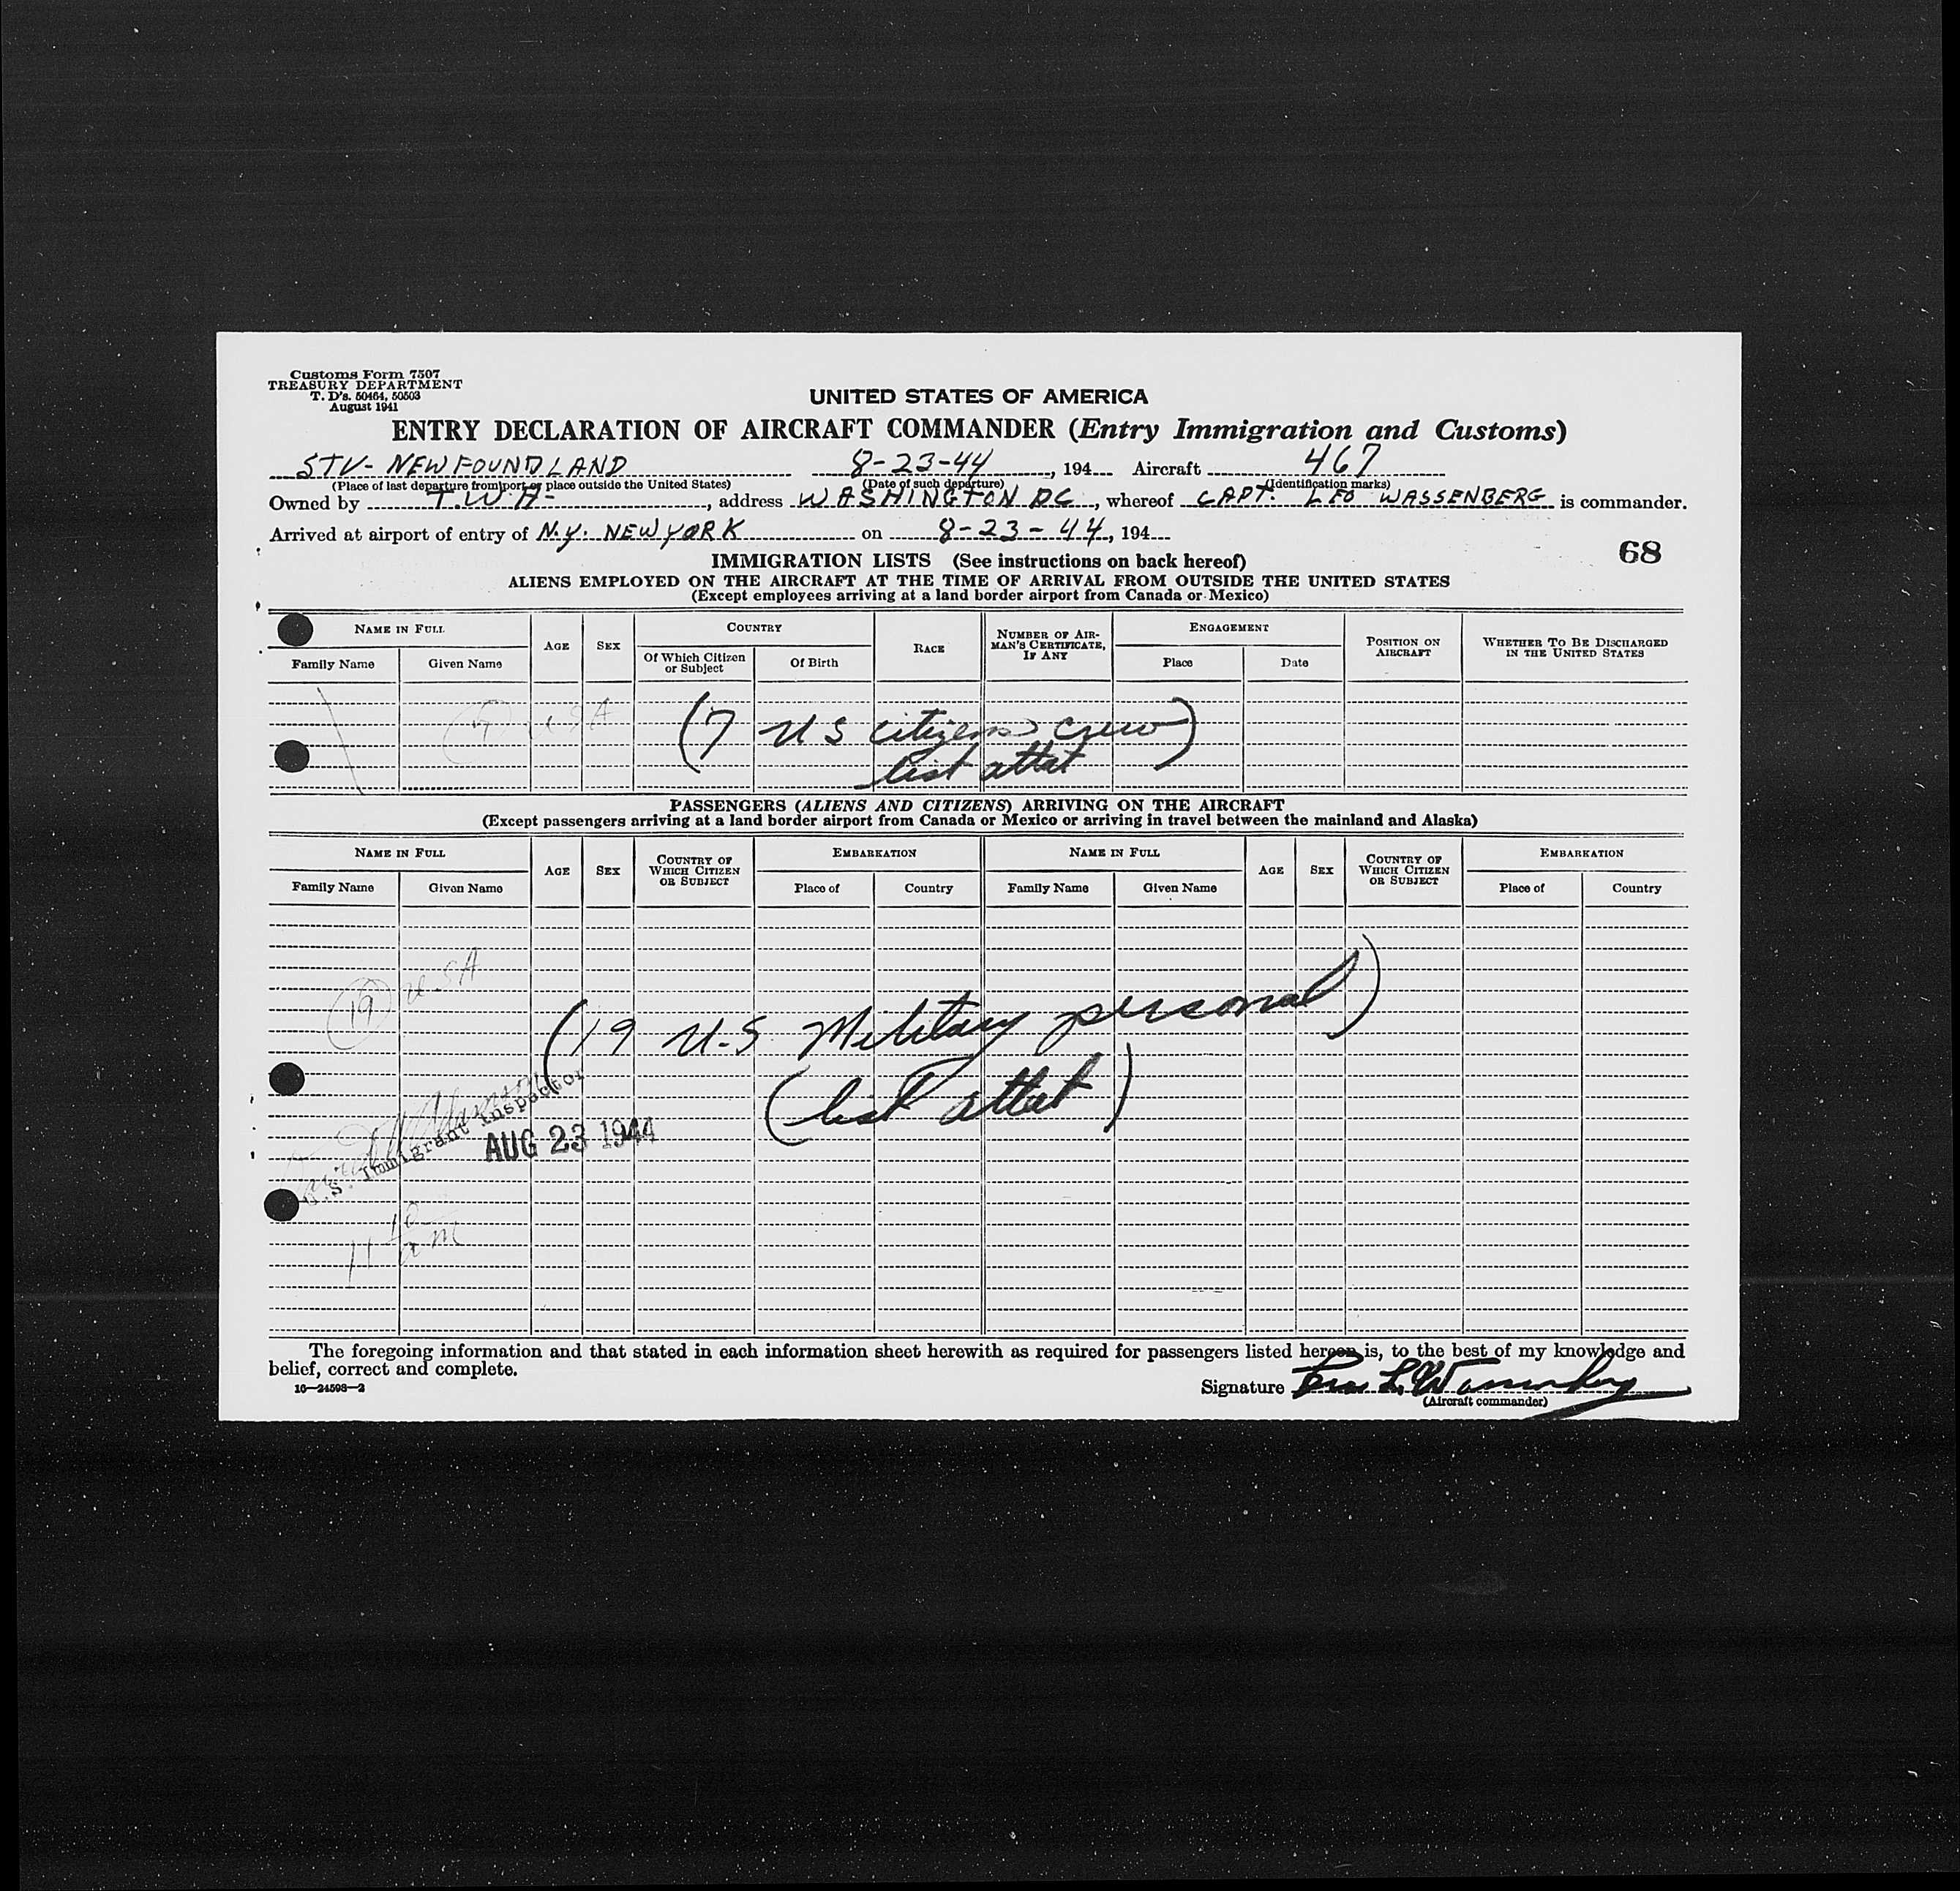 Customs Form 7507
TREASURY DEPARTMENT
T. D's. 50464, 50503
August 1941
UNITED STATES OF AMERICA
ENTRY DECLARATION OF AIRCRAFT COMMANDER (Entry Immigration and Customs)
STV- NEWFOUNDLAND 8-23-44, 194 Aircraft 467
(Place of last departure from port or place outside the United States) (Date of such departure) (Identification marks)
Owned by T.W.A-, address WASHINGTON DC, whereof CAPT. LEO WASSENBERG is commander.
Arrived at airport of entry of N.Y. NEW YORK on 8-23-44, 194
68
IMMIGRATION LISTS (See instructions on back hereof)
ALIENS EMPLOYED ON THE AIRCRAFT AT THE TIME OF ARRIVAL FROM OUTSIDE THE UNITED STATES
(Except employees arriving at a land border airport from Canada or Mexico)
NAME IN FULL AGE SEX COUNTRY RACE NUMBER OF AIRMAN'S CERTIFICATE, IF ANY ENGAGEMENT POSITION ON AIRCRAFT WHETHER TO BE DISCHARGED IN THE UNITED STATES
Family Name Given Name Of Which Citizen or Subject Of Birth Place Date
7 USA (7 US citizens crew)
list attat
PASSENGERS (ALIENS AND CITIZENS) ARRIVING ON THE AIRCRAFT
(Except passengers arriving at a land border airport from Canada or Mexico or arriving in travel between the mainland and Alaska)
NAME IN FULL AGE SEX COUNTRY OF WHICH CITIZEN OR SUBJECT EMBARKATION NAME IN FULL AGE SEX COUNTRY OF WHICH CITIZEN OR SUBJECT EMBARKATION
Family Name Given Name Place of Country Family Name Given Name Place of Country
19 USA
(19 U.S. Military personal)
(list attat)
U.S. Immigrant Inspector
AUG 23 1944
11 10 am
The foregoing information and that stated in each information sheet herewith as required for passengers listed hereon is, to the best of my knowledge and
belief, correct and complete.
16—24598—2
Signature Leo L. Wassenberg
(Aircraft commander)